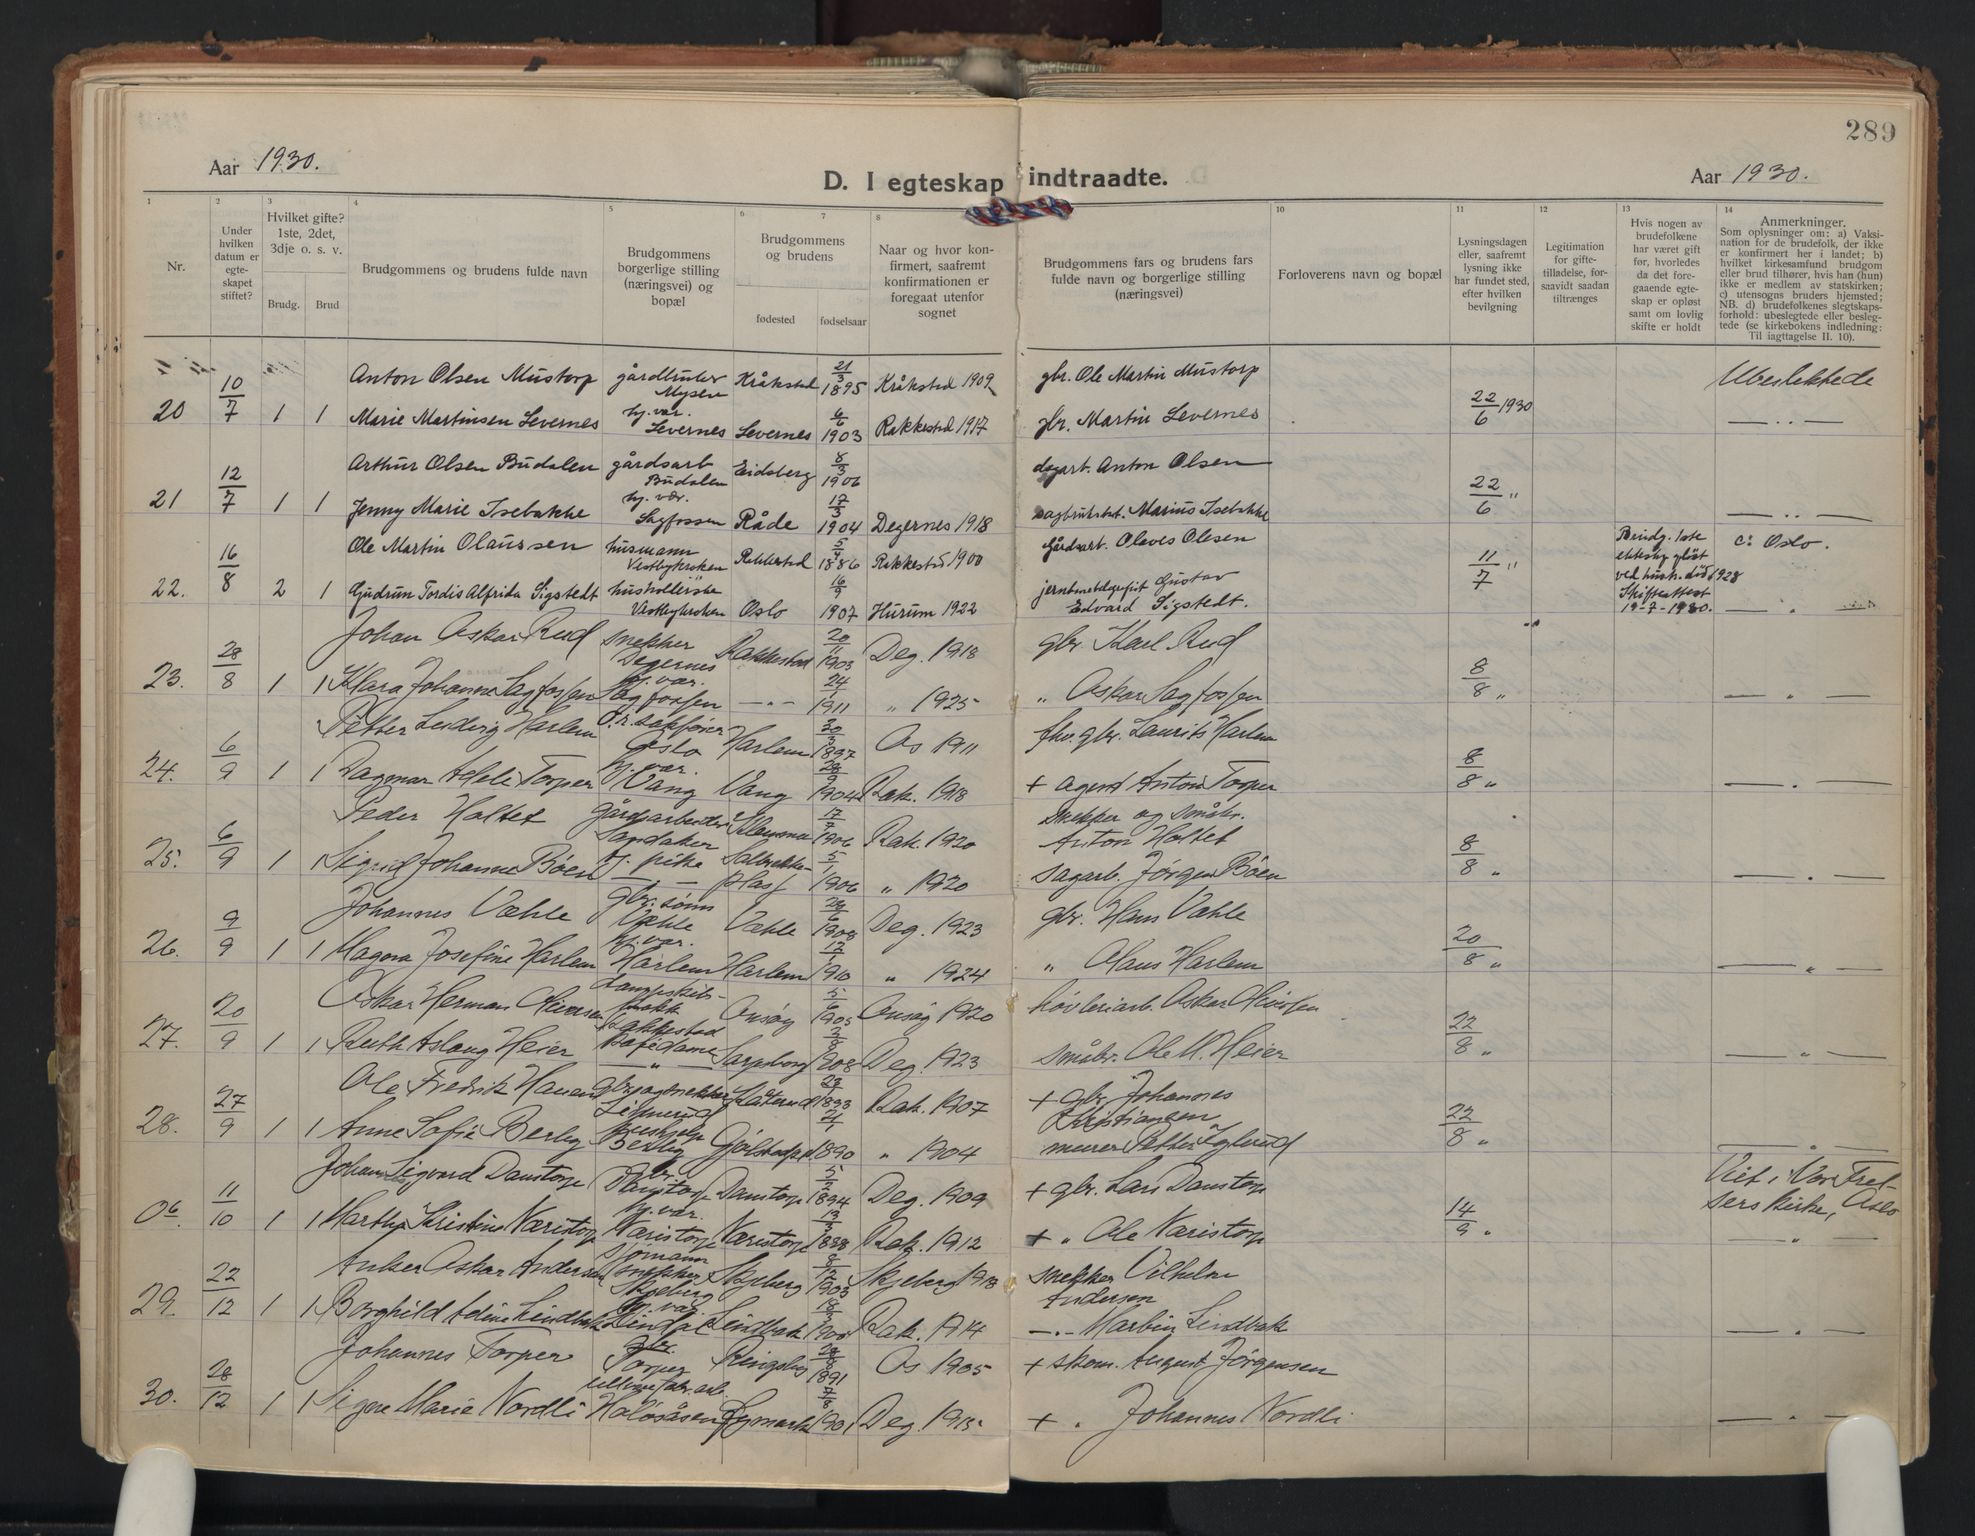 289
Aar 1930.
D. I egteskap indtraadte.
Aar 1930.
1 2 3 4 5 6 7 8 10 11 12 13 14
Nr.
Under hvilken datum er egte-skapet stiftet?
Hvilket gifte? 1ste, 2det, 3dje o. s. v.
Brudg. Brud
Brudgommens og brudens fulde navn
Brudgommens borgerlige stilling (næringsvei) og bopæl
Brudgommens og brudens
fødested fødselsaar
Naar og hvor kon-firmert, saafremt konfirmationen er foregaat utenfor sognet
Brudgommens fars og brudens fars fulde navn og borgerlige stilling (næringsvei)
Forloverens navn og bopæl
Lysningsdagen eller, saafremt lysning ikke har fundet sted, efter hvilken bevilgning
Legitimation for gifte-tilladelse, for-saavidt saadan tiltrænges
Hvis nogen av brudefolkene har været gift før, hvorledes da det fore-gaaende egte-skap er opløst samt om lovlig skifte er holdt
Anmerkninger.
Som oplysninger om: a) Vaksi-nation for de brudefolk, der ikke er konfirmert her i landet; b) hvilket kirkesamfund brudgom eller brud tilhører, hvis han (hun) ikke er medlem av statskirken; c) utensogns bruders hjemsted; NB. d) brudefolkenes slegtskaps-forhold: ubeslegtede eller beslegtede (se kirkebokens indledning: Til iagttagelse II. 10).
Anton Olsen Mustorp Mysen Kråkstad 21/3 1895 Kråkstad 1909 gbr. Ole Martin Mustorp Ubeslektede
20 10/7 1 1 Marie Martinsen Levernes hj. vær. Levernes Levernes 6/6 1903 Rakkestad 1917 gbr. Martin Levernes 22/6 1930
Arthur Olsen Budalen gårdsarb Budalen Eidsberg 8/3 1906 Anton Olsen
21 12/7 1 1 Jenny Marie Isebakke hj. vær. Sagfossen Råde 17/3 1904 Degernes 1918 Marius Isebakke 22/6 "
Ole Martin Olaussen husmann Vestbykroken Rakkestad 5/4 1886 Rakkestad 1900 gårdsarb. Olaves Olesen Brudg. 1ste ektesk. opløst ved hustr. død 1928 Skifteattest 19-7-1930. c: Oslo.
22. 16/8 2 1 Gudrun Tordis Alfrida Sigstedt husholderske Vestbykroken Oslo 16/9 1907 Hurum 1922 Gustav Edvard Sigstedt. 11/7 "
Johan Oskar Rud snekker Degernes Rakkestad 20/11 1903 Deg. 1918 gbr. Karl Rud
23. 28/8 1 1 Klara Johanne Sagfossen hj. vær. Sagfossen — " — 24/1 1911 " 1925 " Oskar Sagfossen 8/8 "
Petter Ludvig Harlem o.r. sakfører Oslo Harlem 30/3 1897 Os 1911 fhv. gbr. Laurits Harlem
24. 6/9 1 1 Dagmar Adele Torper hj. vær. Vang Vang 1904 Rak. 1918 + agent Anton Torper 8/8 "
Peder Holtet gårdsarbeider Sandaker 17/7 1906 Rak. 1920 snekker og småbr. Anton Holtet
25. 6/9 1 1 Sigrid Johanne Bøen plass 5/1 1906 " 1920 sagarb. Jørgen Bøen 8/8 "
Johannes Væhle gbr. sønn Væhle Væhle 1908 Deg. 1923 gbr. Hans Væhle
26. 9/9 1 1 Magna Josefine Harlem hj. vær. Harlem Harlem 1910 " 1924 " Olaus Harlem 20/8 "
Oskar Herman Rakkestad Onsøy 5/6 1905 Onsøy 1920 høvleriarb. Oskar
27. 20/9 1 1 Ruth Aslaug Heier kafédame — " — Sarpsborg 1908 Deg. 1923 småbr. Ole M. Heier 22/8 "
Ole Fredrik 1893 Rak. 1907 + gbr. Johannes Kristiansen
28. 27/9 1 1 Anne Sofie Berby hushjelp Berby 1890 " 1904 murer Petter 22/8 "
Johan Sigvard Danstorp gbr. Danstorp Danstorp 1894 Deg. 1909 + gbr. Lars Danstorp Viet i Vor Frelsers kirke, Oslo
06. 11/10 1 1 Marthe Kristine Næristorp hj. vær. Næristorp Næristorp 1898 Rak. 1912 + " Ole Næristorp 14/9 "
Anker Oskar Andersen sjømann snekker Skjeberg Skjeberg 1903 Skjeberg 1918 snekker Vilhelm Andersen
29. 22/12 1 1 Borghild Adine Lindbak hj. vær. Lindbak 1900 Rak. 1914 — " — Martin Lindbak
Johannes Torper gbr. Torper Ringsby 1891 Os 1905 + skom. August Jørgensen
30. 28/12 1 1 Signe Marie Nordli Holøsåsen 1901 Deg. 1915 + " Johannes Nordli